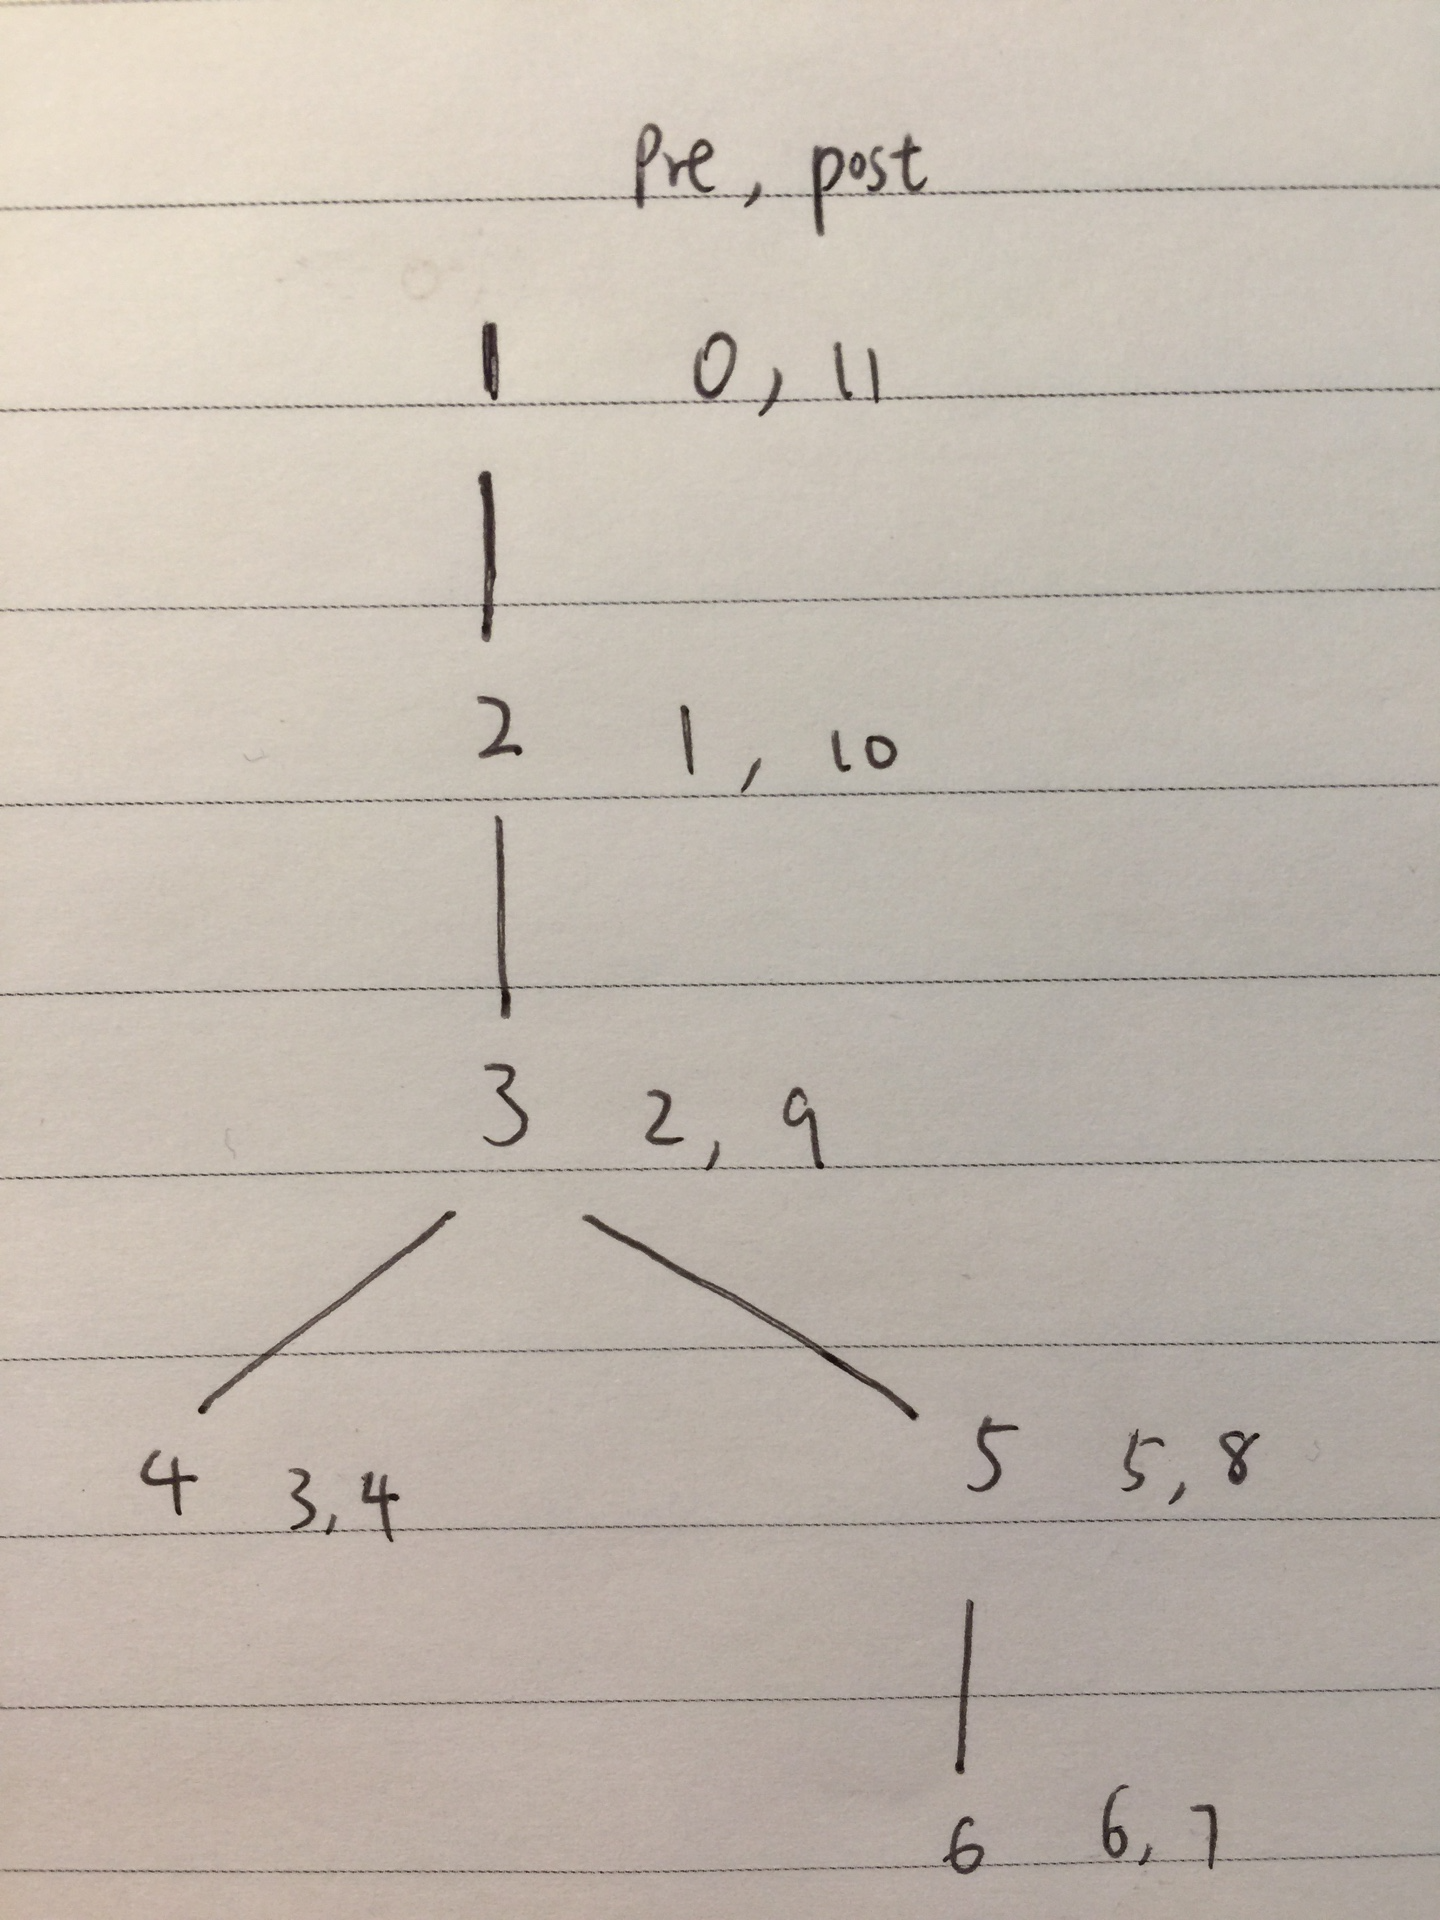 Pre, post
1 0, 11
2 1, 10
3 2, 9
4 3, 4 5 5, 8
6 6, 7